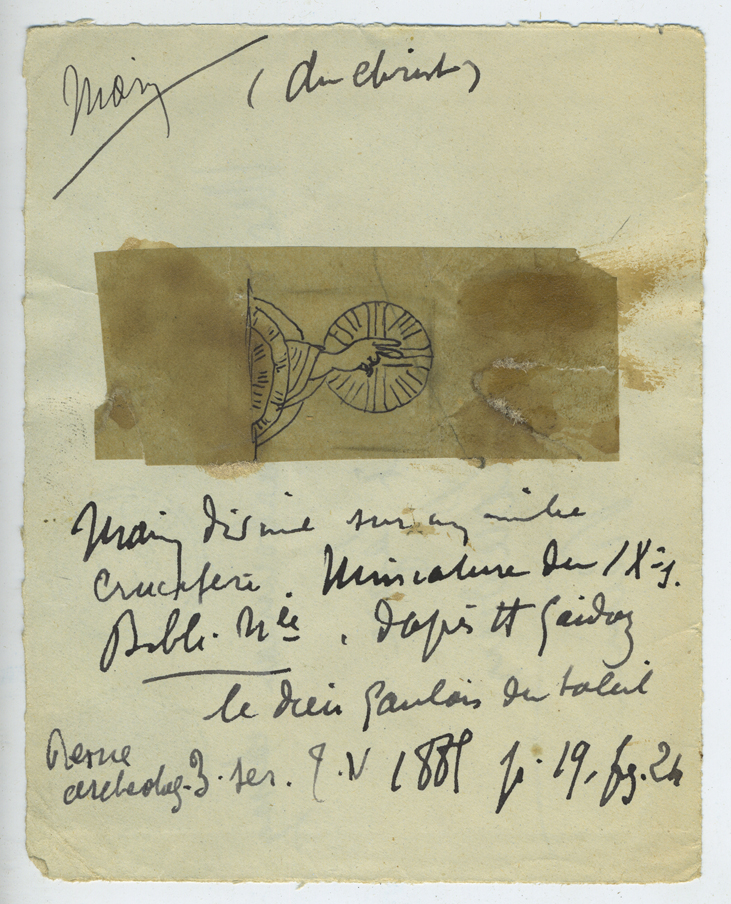 Main (du Christ)
Main divine sur un nimbe
crucifere. Miniature du IXe s.
Bibli. Nle, d'apès H Gaidoz
le dieu Gaulois du soleil
Revue
archeolog. 3. ser. T. V 1885 p. 19, fig. 24